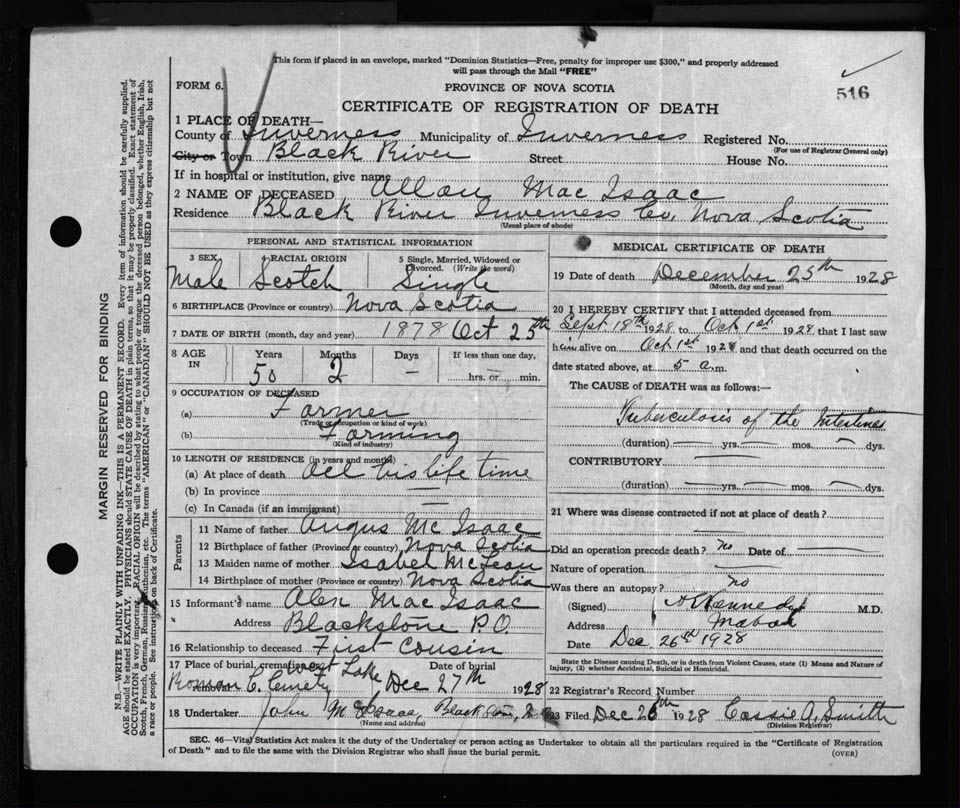 This form if placed in an envelope, marked "Dominion Statistics—Free, penalty for improper use $300," and properly addressed
will pass through the Mail "FREE"
516
FORM 6.
PROVINCE OF NOVA SCOTIA
CERTIFICATE OF REGISTRATION OF DEATH
1 PLACE OF DEATH—
County of Inverness Municipality of Inverness Registered No.
(For use of Registrar General only)
City or Town Black River Street House No.
If in hospital or institution, give name
2 NAME OF DECEASED Allan Mac Isaac
Residence Black River Inverness Co, Nova Scotia
(Usual place of abode)
PERSONAL AND STATISTICAL INFORMATION
3 SEX 4 RACIAL ORIGIN 5 Single, Married, Widowed or Divorced. (Write the word)
Male Scotch Single
6 BIRTHPLACE (Province or country) Nova Scotia
7 DATE OF BIRTH (month, day and year) 1878 Oct 25th
8 AGE IN Years Months Days If less than one day,
50 2 — hrs. or min.
9 OCCUPATION OF DECEASED
(a) Farmer
(Trade occupation or kind of work)
(b) Farming
(Kind of industry)
10 LENGTH OF RESIDENCE (in years and months)
(a) At place of death All his life time
(b) In province —
(c) In Canada (if an immigrant) —
Parents
11 Name of father Angus Mc Isaac
12 Birthplace of father (Province or country) Nova Scotia
13 Maiden name of mother Isabel McLean
14 Birthplace of mother (Province or country) Nova Scotia
15 Informant's name Alex Mac Isaac
Address Blackstone P.O.
16 Relationship to deceased First Cousin
17 Place of burial, cremation or removal West Lake Date of burial
Roman C. Cemety Dec 27th 1928
18 Undertaker John McIsaac, Blackston,
(Name and address)
MEDICAL CERTIFICATE OF DEATH
19 Date of death December 25th 1928
(Month, day and year)
20 I HEREBY CERTIFY that I attended deceased from
Sept 18th 1928 to Oct 1st 1928 that I last saw
him alive on Oct 1st 1928 and that death occurred on
date stated above, at 5 a.m.
The CAUSE of DEATH was as follows:—
Tuberculosis of the Intestines
(duration) — yrs. — mos. — dys.
CONTRIBUTORY —
(duration) — yrs. — mos. — dys.
21 Where was disease contracted if not at place of death?
—
Did an operation precede death? no Date of —
Nature of operation —
Was there an autopsy? no
(Signed) A Kennedy M.D.
Address Mabou
Date Dec 26th 1928
State the Disease causing Death, or in death from Violent Causes, state (1) Means and Nature of
Injury, (2) whether Accidental, Suicidal or Homicidal.
22 Registrar's Record Number
23 Filed Dec 26th 1928 Cassie A. Smith
(Division Registrar)
SEC. 46—Vital Statistics Act makes it the duty of the Undertaker or person acting as Undertaker to obtain all the particulars required in the "Certificate of Registration
of Death" and to file the same with the Division Registrar who shall issue the burial permit.
(OVER)
MARGIN RESERVED FOR BINDING
N.B.—WRITE PLAINLY WITH UNFADING INK—THIS IS A PERMANENT RECORD. Every item of information should be carefully supplied.
AGE should be stated EXACTLY. PHYSICIANS should STATE CAUSE OF DEATH in plain terms, so that it may be properly classified. Exact statement of
OCCUPATION is very important. RACIAL ORIGIN will be described by stating to what people or tongue the deceased person belonged, whether English, Irish,
Scotch, French, German, Russian, Ruthenian, etc. The terms "AMERICAN" or "CANADIAN" SHOULD NOT BE USED as they express citizenship but not
a race or people. See instructions on back of Certificate.